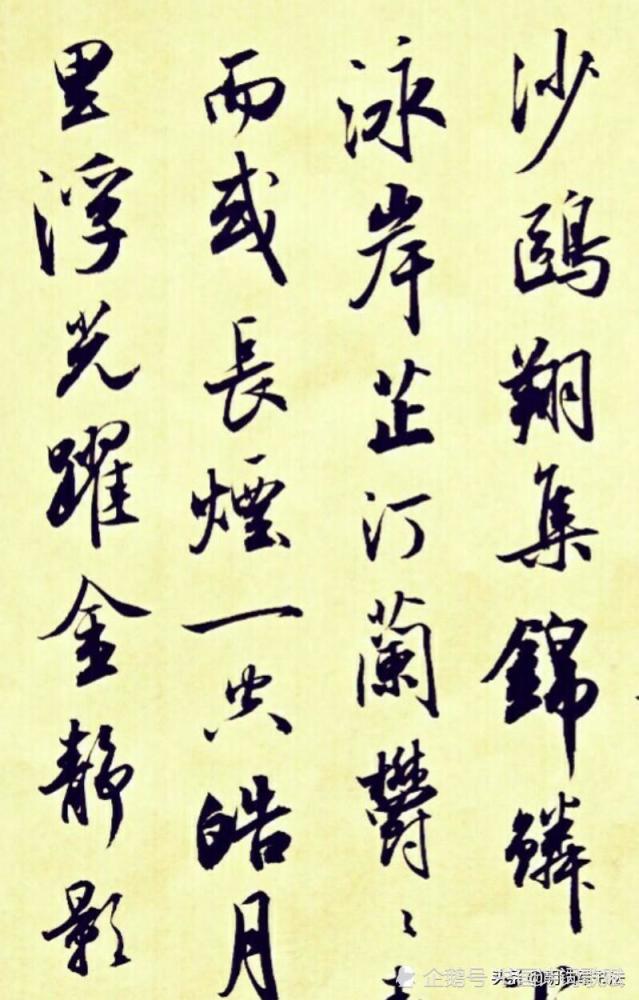 沙鷗翔集錦鱗
泳岸芷汀蘭鬱〻
而或長煙一空皓月
里浮光躍金靜影
企鹅号
头条